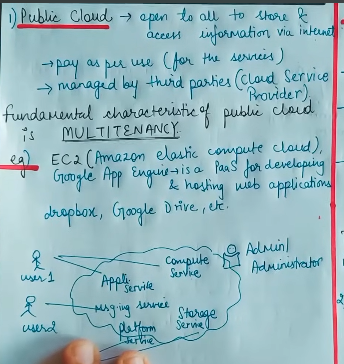 i) Public Cloud → open to all to store &
access information via internet
→ pay as per use (for the services)
→ managed by third parties (Cloud Service
Provider)
fundamental characteristic of public cloud
is MULTITENANCY
eg) EC2 (Amazon elastic compute cloud),
Google App Engine → is a PaaS for developing
& hosting web applications
dropbox, Google Drive, etc.
user1
Compute
Service
Admin/
Administrator
Appli.
Service
user2
Msg-ing service
Storage
Service
Platform
Service